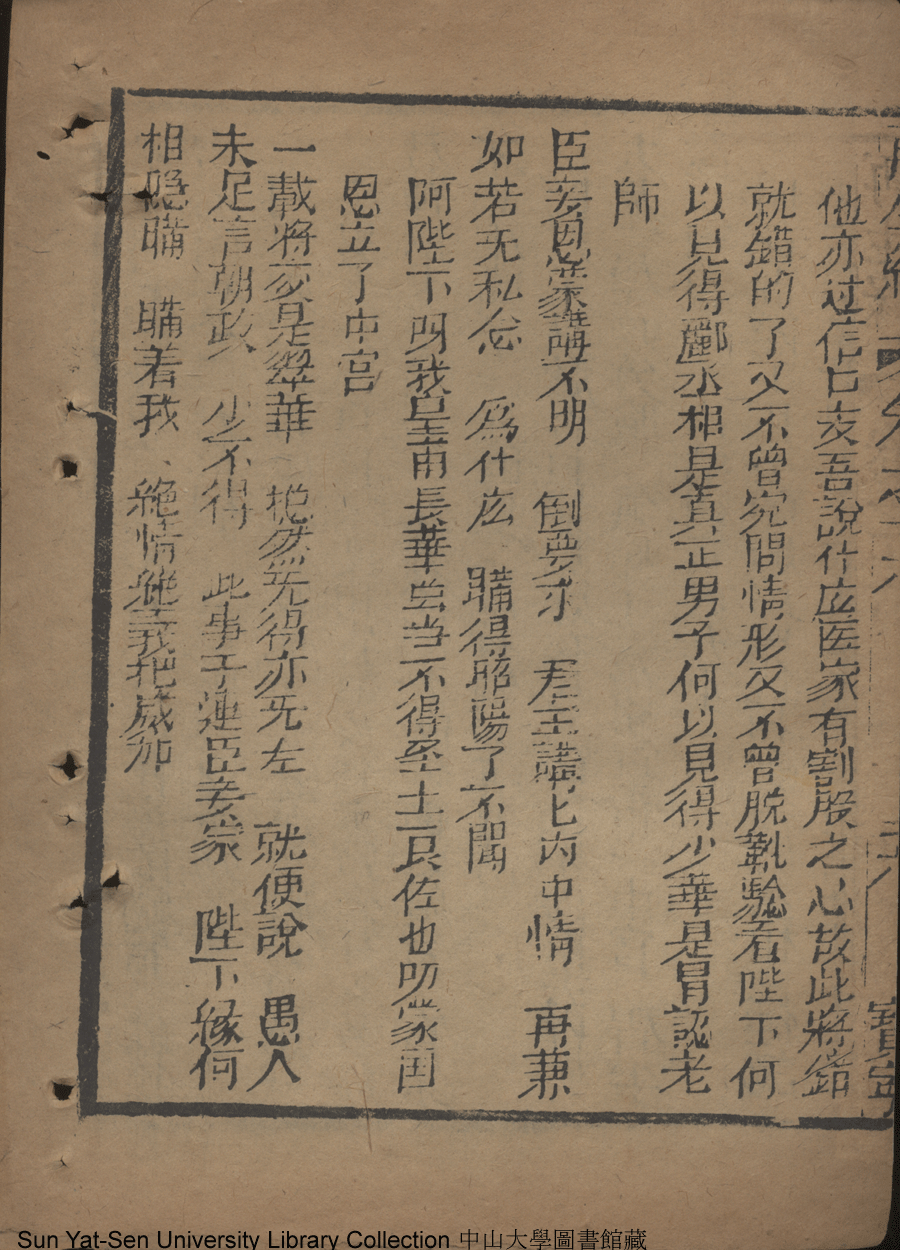 他亦过信口支吾說什庅医家有割股之心故此將錯
就錯的了又不曾究問情形又不曾脫靴驗看陛下何
以見得酈丞相是真正男子何以見得少華是冒認老
師
臣妾恩蒙講不明　倒要尔　君王講七內中情　再兼
如若无私念　為什庅　瞞得昭陽了不聞
阿陛下吓我皇甫長華虽当不得圣主一良佐也叨蒙囯
恩立了中宮
一載將亥是翠華　抱然无得亦无左　就便說　愚人
未足言朝政　少不得　此事干連臣妾家　陛下緣何
相隐瞞　瞞着我　絶情絶義把威加
Sun Yat-Sen University Library Collection 中山大學圖書館藏